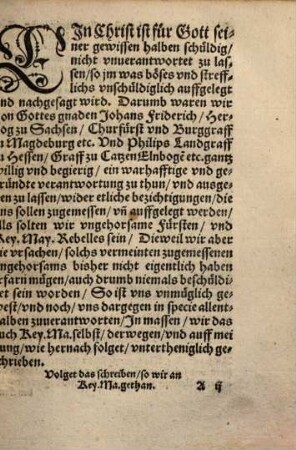 EIn Christ ist für Gott sei-
ner gewissen halben schüldig/
nicht vnuerantwortet zu las-
sen/so jm was böses vnd streff-
lichs vnschüldiglich auffgelegt
nd nachgesagt wird. Darumb waren wir
on Gottes gnaden Johans Friderich/Her-
og zu Sachsen/ Churfürst vnd Burggraff
u Magdeburg etc. Vnd Philips Landgraff
u Hessen/ Graff zu CatzenElnboge etc.gantz
illig vnd begierig/ ein warhafftige vnd ge-
ründte verantwortung zu thun/ vnd ausge-
en zu lassen/wider etliche bezichtigungen/die
ns sollen zugemessen/ vñ auffgelegt werden/
lls solten wir vngehorsame Fürsten/ vnd
Key. May. Rebelles sein/ Dieweil wir aber
ie vrsachen/ solchs vermeinten zugemessenen
ngehorsams bisher nicht eigentlich haben
rfarn mügen/auch drumb niemals beschüldi-
et sein worden/ So ist vns vnmüglich ge-
vest/vnd noch/ vns dargegen in specie allent-
alben zuuerantworten/ In massen/ wir das
uch Key.Ma.selbst/ derwegen/vnd auff mei
ung/wie hernach folget/ vntertheniglich ge-
chrieben.
Volget das schreiben/so wir an
Key.Ma.gethan. A ij